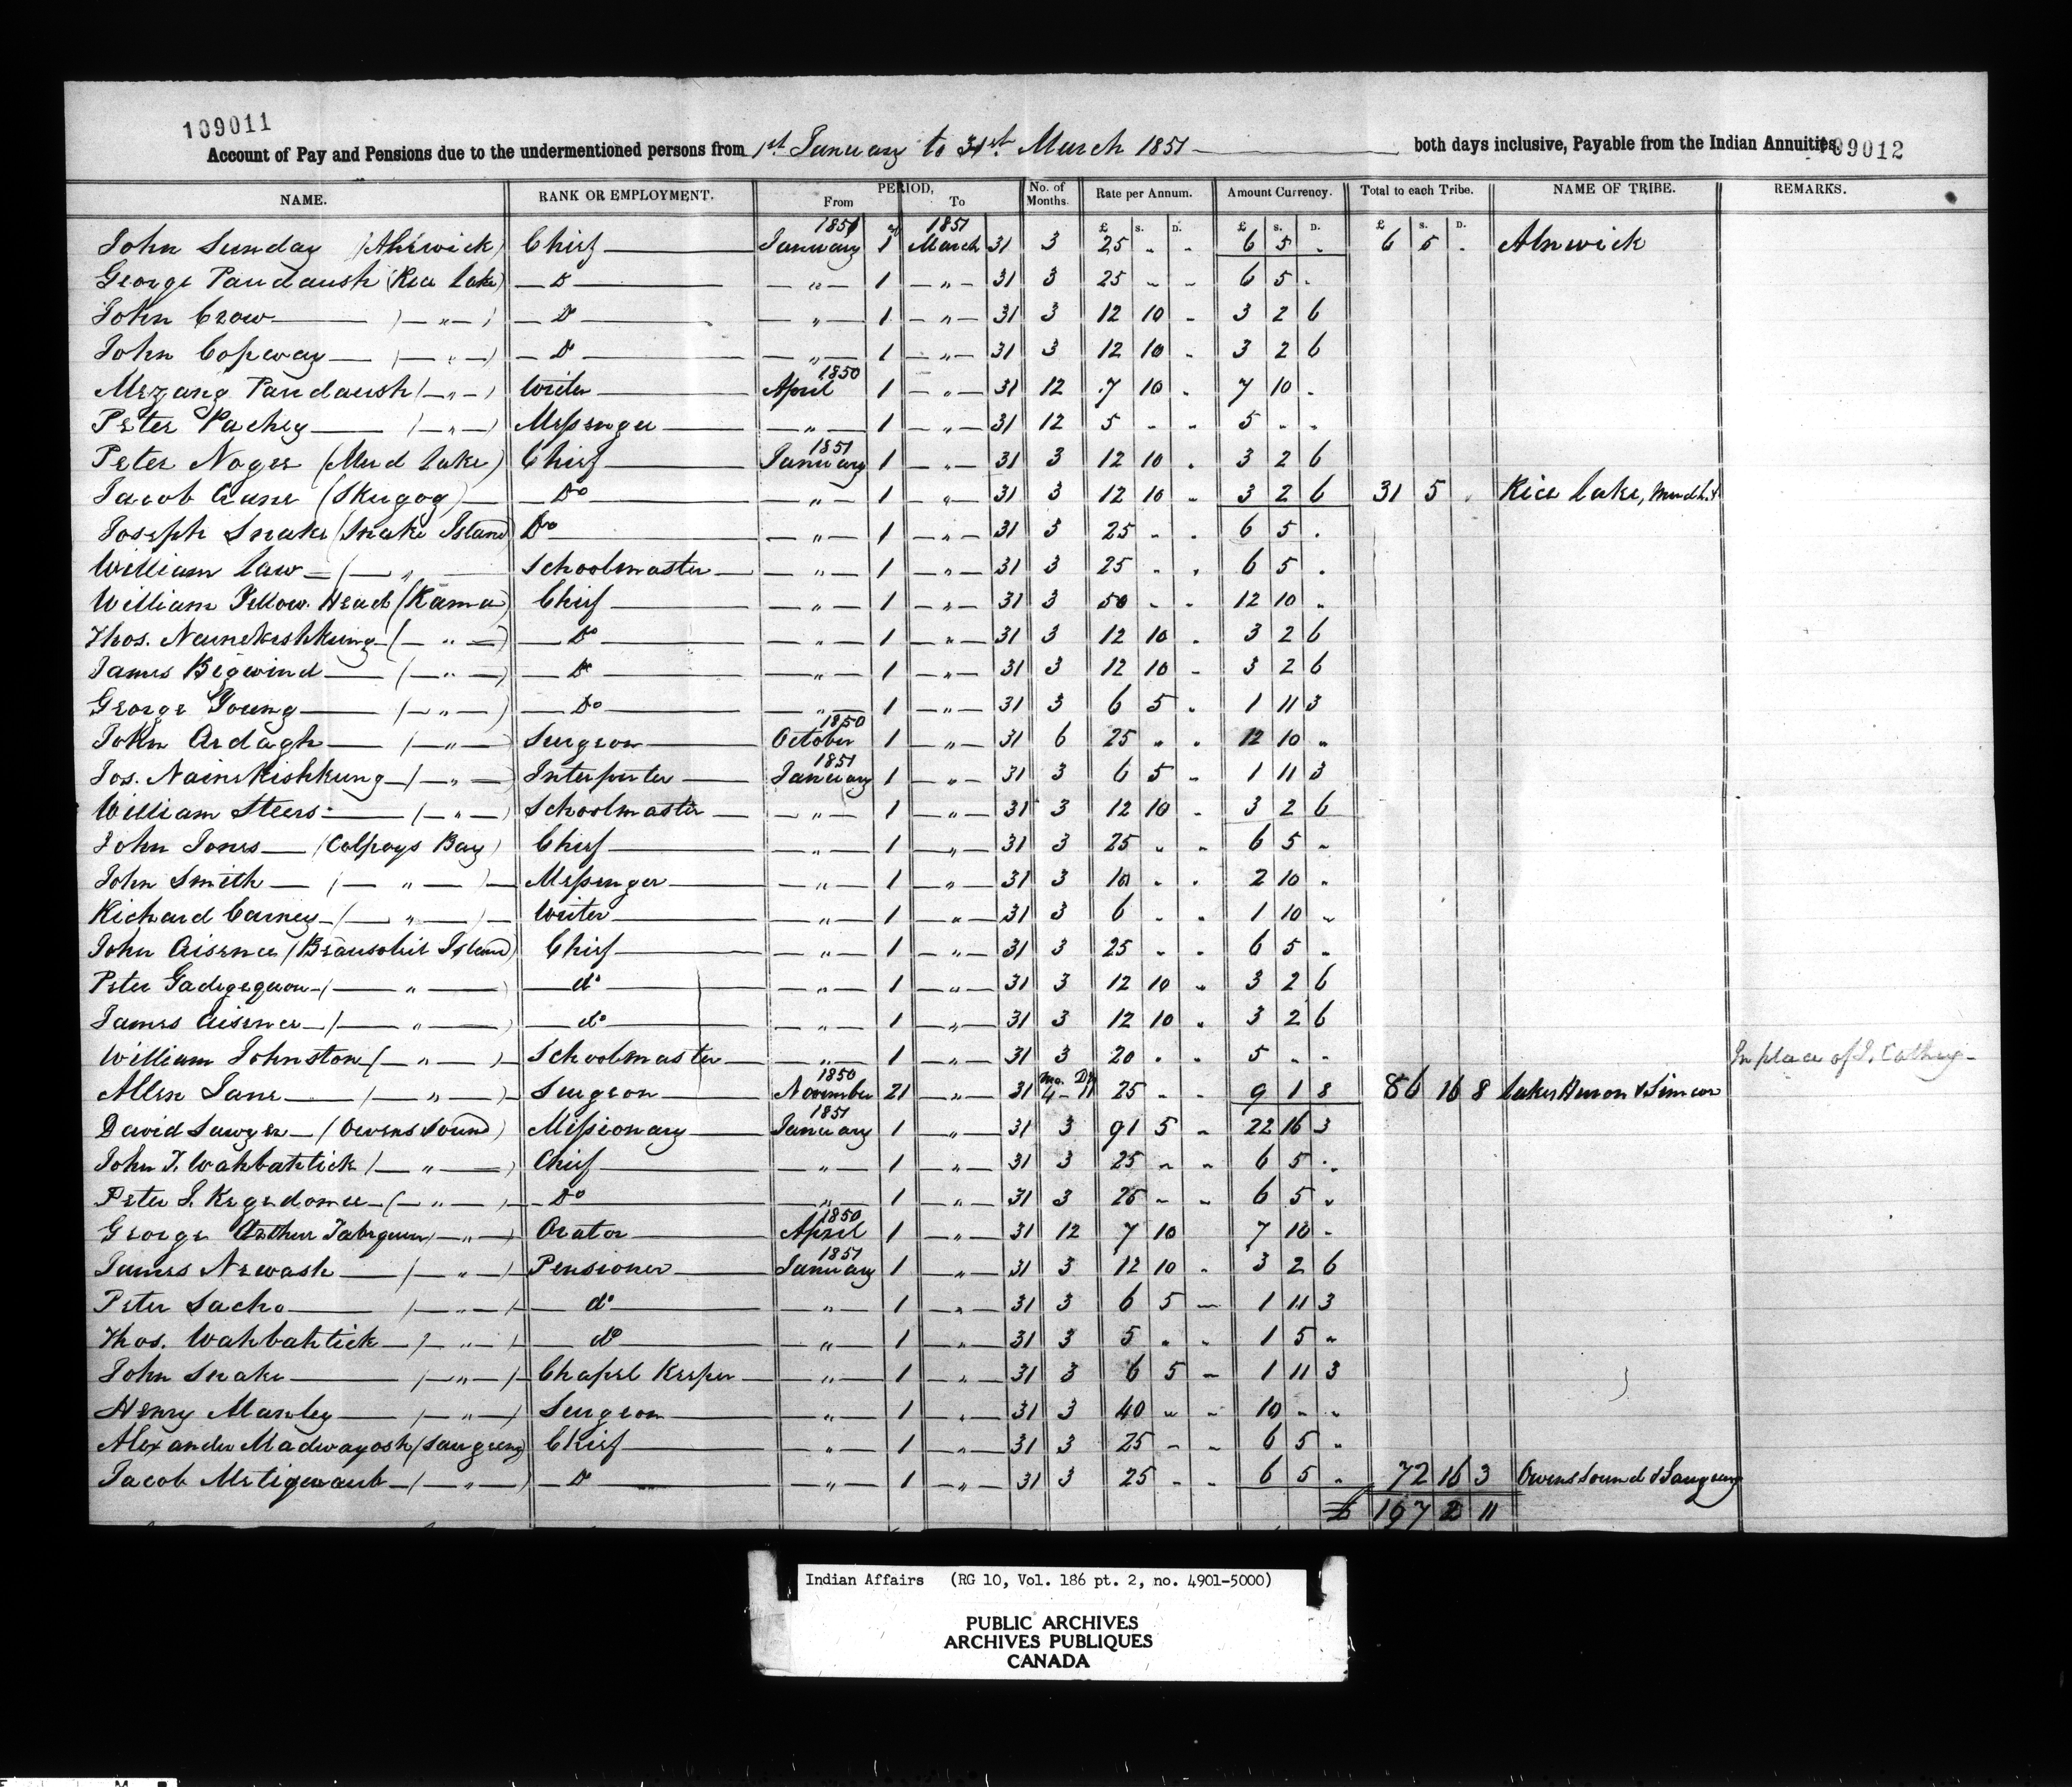 109011
Account of Pay and Pensions due to the undermentioned persons from 1st January to 31st March 1851 both days inclusive, Payable from the Indian Annuities 109012
NAME. RANK OR EMPLOYMENT. PERIOD, From To No. of Months. Rate per Annum. Amount Currency. Total to each Tribe. NAME OF TRIBE. REMARKS.
1851 1851 £ s. D. £ s. D. £ s. D.
John Sunday (Alnwick) Chief January 1 March 31 3 25 " " 6 5 " 6 5 " Alnwick
George Paudaush (Rice Lake) Do " 1 " 31 3 25 " " 6 5 "
John Crow ( " ) Do " 1 " 31 3 12 10 " 3 2 6
John Copway ( " ) Do " 1 " 31 3 12 10 " 3 2 6
Mezang Paudaush ( " ) Writer 1850 April 1 " 31 12 7 10 " 7 10 "
Peter Pachey ( " ) Messenger " 1 " 31 12 5 " " 5 " "
Peter Noges (Mud Lake) Chief 1851 January 1 " 31 3 12 10 " 3 2 6
Jacob Crane (Skugog) Do " 1 " 31 3 12 10 " 3 2 6 31 5 " Rice Lake,
Joseph Snake (Snake Island) Do " 1 " 31 3 25 " " 6 5 "
William Law ( " Schoolmaster " 1 " 31 3 25 " " 6 5 "
William Yellow Head (Rama) Chief " 1 " 31 3 50 " " 12 10 "
Thos. Nainekishkung ( " ) Do " 1 " 31 3 12 10 " 3 2 6
James Bigwind ( " ) Do " 1 " 31 3 12 10 " 3 2 6
George Young ( " ) Do " 1 " 31 3 6 5 " 1 11 3
John Ardagh ( " ) Surgeon 1850 October 1 " 31 6 25 " " 12 10 "
Jos. Nainekishkung ( " ) Interpreter 1851 January 1 " 31 3 6 5 " 1 11 3
William Steers ( " ) Schoolmaster " 1 " 31 3 12 10 " 3 2 6
John Jones (Colpoys Bay) Chief " 1 " 31 3 25 " " 6 5 "
John Smith ( " ) Messenger " 1 " 31 3 10 " " 2 10 "
Richard Carney ( " ) Writer " 1 " 31 3 6 " " 1 10 "
John Aisence (Beausoliel Island) Chief " 1 " 31 3 25 " " 6 5 "
Peter Gadegegwon ( " ) do " 1 " 31 3 12 10 " 3 2 6
James Aisence ( " ) do " 1 " 31 3 12 10 " 3 2 6
William Johnston ( " ) Schoolmaster " 1 " 31 3 20 " " 5 " " In place of J. Cathey
Allen Jane ( " ) Surgeon 1850 November 21 " 31 Mo. Ds 4 - 11 25 " " 9 1 8 86 16 8 Lakes Huron & Simcoe
David Sawyer (Owens Sound) Missionary 1851 January 1 " 31 3 91 5 " 22 16 3
John T. Wahbahtick ( " ) Chief " 1 " 31 3 25 " " 6 5 "
Peter J. Kegedonce ( " ) Do " 1 " 31 3 25 " " 6 5 "
George Arthur Tabegwun ( " ) Orator 1850 April 1 " 31 12 7 10 7 10 "
James Newash ( " ) Pensioner 1851 January 1 " 31 3 12 10 " 3 2 6
Peter Sacho ( " ) do " 1 " 31 3 6 5 " 1 11 3
Thos. Wahbahtick ( " ) do " 1 " 31 3 5 " " 1 5 "
John Snake ( " ) Chapel Keeper " 1 " 31 3 6 5 " 1 11 3
Henry Manley ( " ) Surgeon " 1 " 31 3 40 " " 10 " "
Alexander Madwayosh (Saugeeng) Chief " 1 " 31 3 25 " " 6 5 "
Jacob Metigwaub ( " ) Do " 1 " 31 3 25 " " 6 5 " 72 16 3 Owens Sound & Saugeeng
£ 197 2 11
Indian Affairs (RG 10, Vol. 186 pt. 2, no. 4901-5000)
PUBLIC ARCHIVES
ARCHIVES PUBLIQUES
CANADA